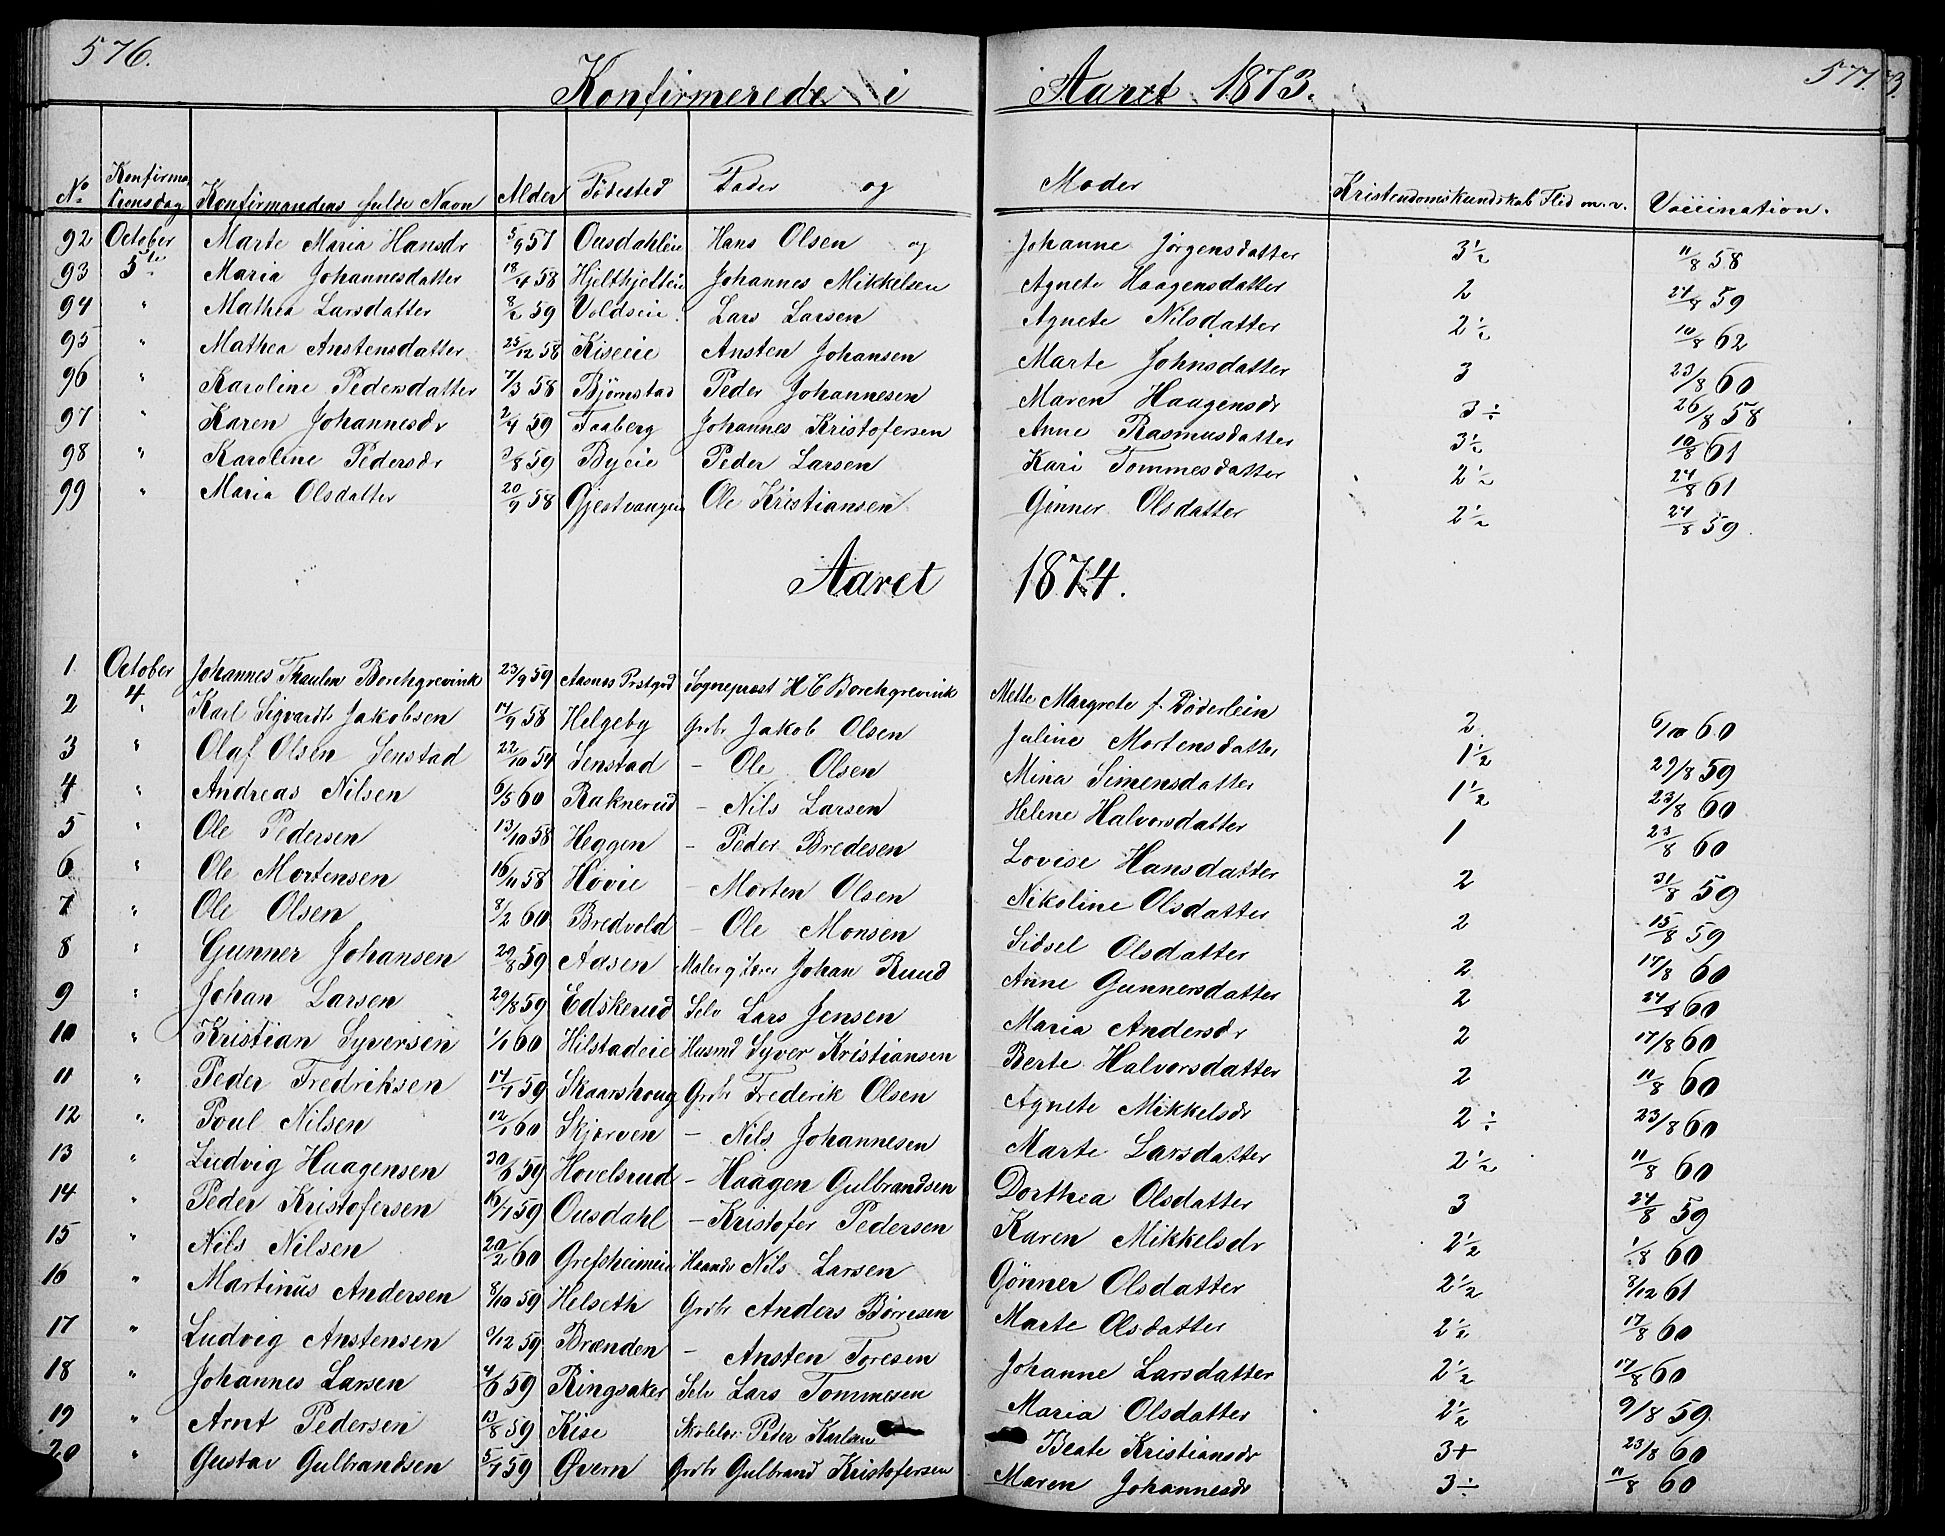 576. 577.
Konfirmerede i Aaret 1873.
No Konfirmationsdag Konfirmandens fulde Navn Alder Fødested Fader og Moder Kristendomskundskab Flid m. v. Vaccination.
92 October Marte Maria Hansdr 5/9 57 Ousdahleie Hans Olsen og Johanne Jørgensdatter 3 1/2 11/8 58
93 5te Maria Johannesdatter 18/4 58 Johannes Mikkelsen Agnete Haagensdatter 2 24/8 59
94 " Mathea Larsdatter 59 Voldseie Lars Larsen Agnete Nilsdatter 2 1/2 10/8 62
95 " Mathea Anstensdatter 25/12 58 Kiseeie Ansten Johansen Marte Johnsdatter 3 23/8 60
96 " Karoline Pedersdatter 7/3 58 Bjørnstad Peder Johannesen Maren Haagensdr 3 ÷ 26/8 58
97 " Karen Johannesdr 2/4 59 Faaberg Johannes Kristofersen Anne Rasmusdatter 3 1/2 10/8 61
98 " Karoline Pedersdr 3/8 59 Byeie Peder Larsen Kari Tommesdatter 2 1/2 24/8 61
99 " Maria Olsdatter 20/9 58 Gjestvangeie Ole Kristiansen Gønner Olsdatter 2 1/2 24/8 59
Aaret 1874.
1 October Johannes Thaulow Borchgrevink 23/9 59 Aasnes Prstgrd Sogneprest H C Borchgrevink Mette Margrete f. Døderlein 2 6/10 60
2 4 Karl Sigvardt Jakobsen 14/9 58 Helgeby Grdbr Jakob Olsen Juline Mortensdatter 1 1/2 29/8 59
3 " Olaf Olsen Senstad 22/10 54 Senstad - Ole Olsen Mina Simensdatter 1 1/2 23/8 60
4 " Andreas Nilsen 6/5 60 Raknerud - Nils Larsen Helene Halvorsdatter 1 23/8 60
5 " Ole Pedersen 13/10 58 Heggen - Peder Bredesen Lovise Hansdatter 2 31/8 59
6 " Ole Mortensen 16/11 58 Hovie - Morten Olsen Nikoline Olsdatter 2 15/8 59
7 " Ole Olsen 8/2 60 Bredvold - Ole Monsen Sidsel Olsdatter 2 17/8 60
8 " Gunner Johansen 29/8 59 Aasen Maler Johan Ruud Anne Gunnersdatter 2 24/8 60
9 " Johan Larsen 29/8 59 Edskerud Selv Lars Jensen Maria Andersdr 2 17/8 60
10 " Kristian Syversen 1/1 60 Hilstadeie Husmd Syver Kristiansen Berte Halvorsdatter 2 11/8 60
11 " Peder Fredriksen 14/7 59 Skaarshoug Grdbr Frederik Olsen Agnete Mikkelsdr 2 ÷ 23/8 60
12 " Poul Nilsen 12/1 60 Skjerven - Nils Johannesen Marte Larsdatter 2 1/2 11/8 60
13 " Ludvig Haagensen 30/6 59 Hovelsrud - Haagen Gulbrandsen Dorthea Olsdatter 3 24/8 59
14 " Peder Kristofersen 16/7 59 Ousdahl - Kristofer Pedersen Karen Mikkelsdr 2 1/2 1/8 60
15 " Nils Nilsen 20/2 60 Grefsheimeie Nils Larsen Gønner Olsdatter 2 1/2 8/12 61
16 " Martinus Andersen 8/10 59 Helseth Grdbr Anders Børresen Marte Olsdatter 2 1/2 17/8 60
17 " Ludvig Anstensen 9/12 59 Brænden - Ansten Toresen Johanne Larsdatter 2 1/2 17/8 60
18 " Johannes Larsen 4/6 59 Ringsaker Selv Lars Tommesen Maria Olsdatter 2 1/2 9/8 59
19 " Arnt Pedersen 13/8 59 Kise Skolelær Peder Karlsen Beate Kristiansdr 3+ 23/8 60
20 " Gustav Gulbrandsen 5/7 59 Øvern Grdbr Gulbrand Kristofersen Maren Johannesdr 3 ÷ 11/8 60